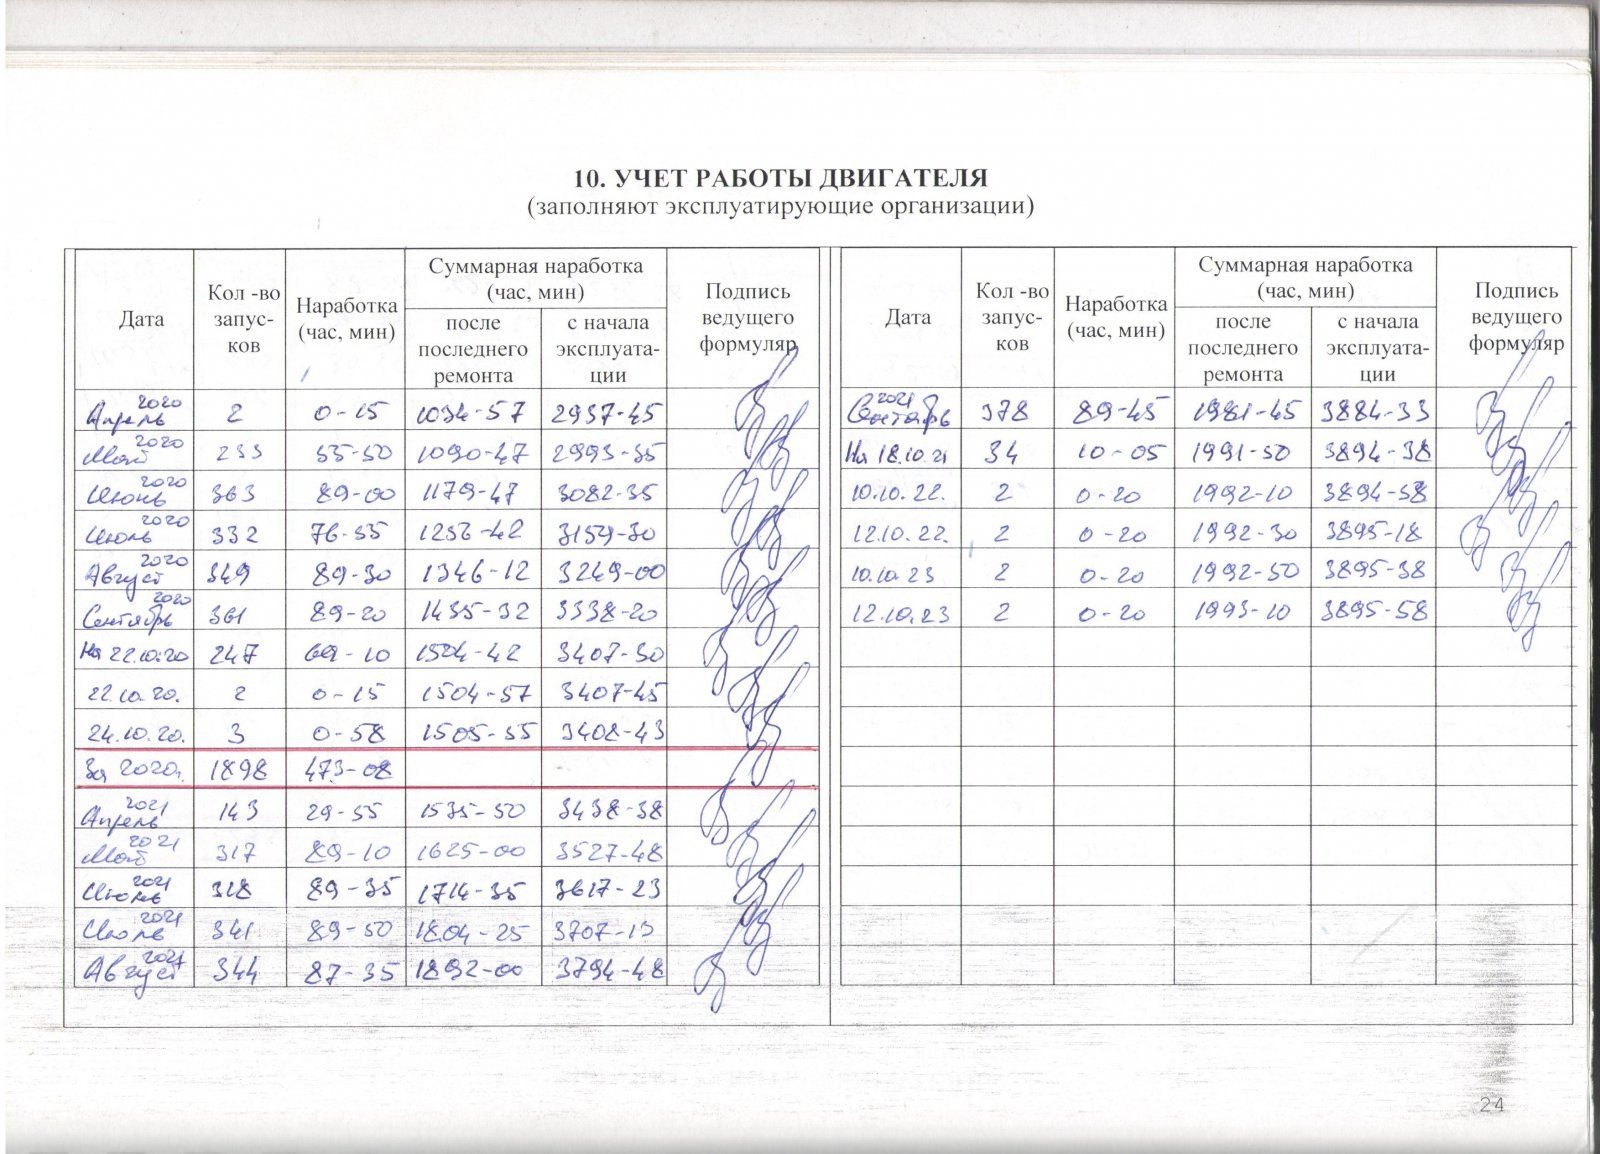 10. УЧЕТ РАБОТЫ ДВИГАТЕЛЯ
(заполняют эксплуатирующие организации)
Дата Кол -во запус-ков Наработка (час, мин) Суммарная наработка (час, мин) после последнего ремонта с начала эксплуата-ции Подпись ведущего формуляр
Апрель 2020 2 0-15 1034-57 2937-45
Май 2020 233 55-50 1090-47 2993-35
Июнь 2020 363 89-00 1179-47 3082-35
Июль 2020 332 76-55 1256-42 3159-30
Август 2020 349 89-30 1346-12 3249-00
Сентябрь 2020 361 89-20 1435-32 3338-20
На 22.10.20 247 69-10 1504-42 3407-30
22.10.20. 2 0-15 1504-57 3407-45
24.10.20. 3 0-58 1505-55 3408-43
За 2020г. 1898 473-08
Апрель 2021 143 29-55 1535-50 3438-38
Май 2021 317 89-10 1625-00 3527-48
Июнь 2021 318 89-35 1714-35 3617-23
Июль 2021 341 89-50 1804-25 3707-13
Август 2021 344 87-35 1892-00 3794-48
Дата Кол -во запус-ков Наработка (час, мин) Суммарная наработка (час, мин) после последнего ремонта с начала эксплуата-ции Подпись ведущего формуляр
Сентябрь 2021 378 89-45 1981-45 3884-33
На 18.10.21 34 10-05 1991-50 3894-38
10.10.22. 2 0-20 1992-10 3894-58
12.10.22. 2 0-20 1992-30 3895-18
10.10.23 2 0-20 1992-50 3895-38
12.10.23 2 0-20 1993-10 3895-58
24